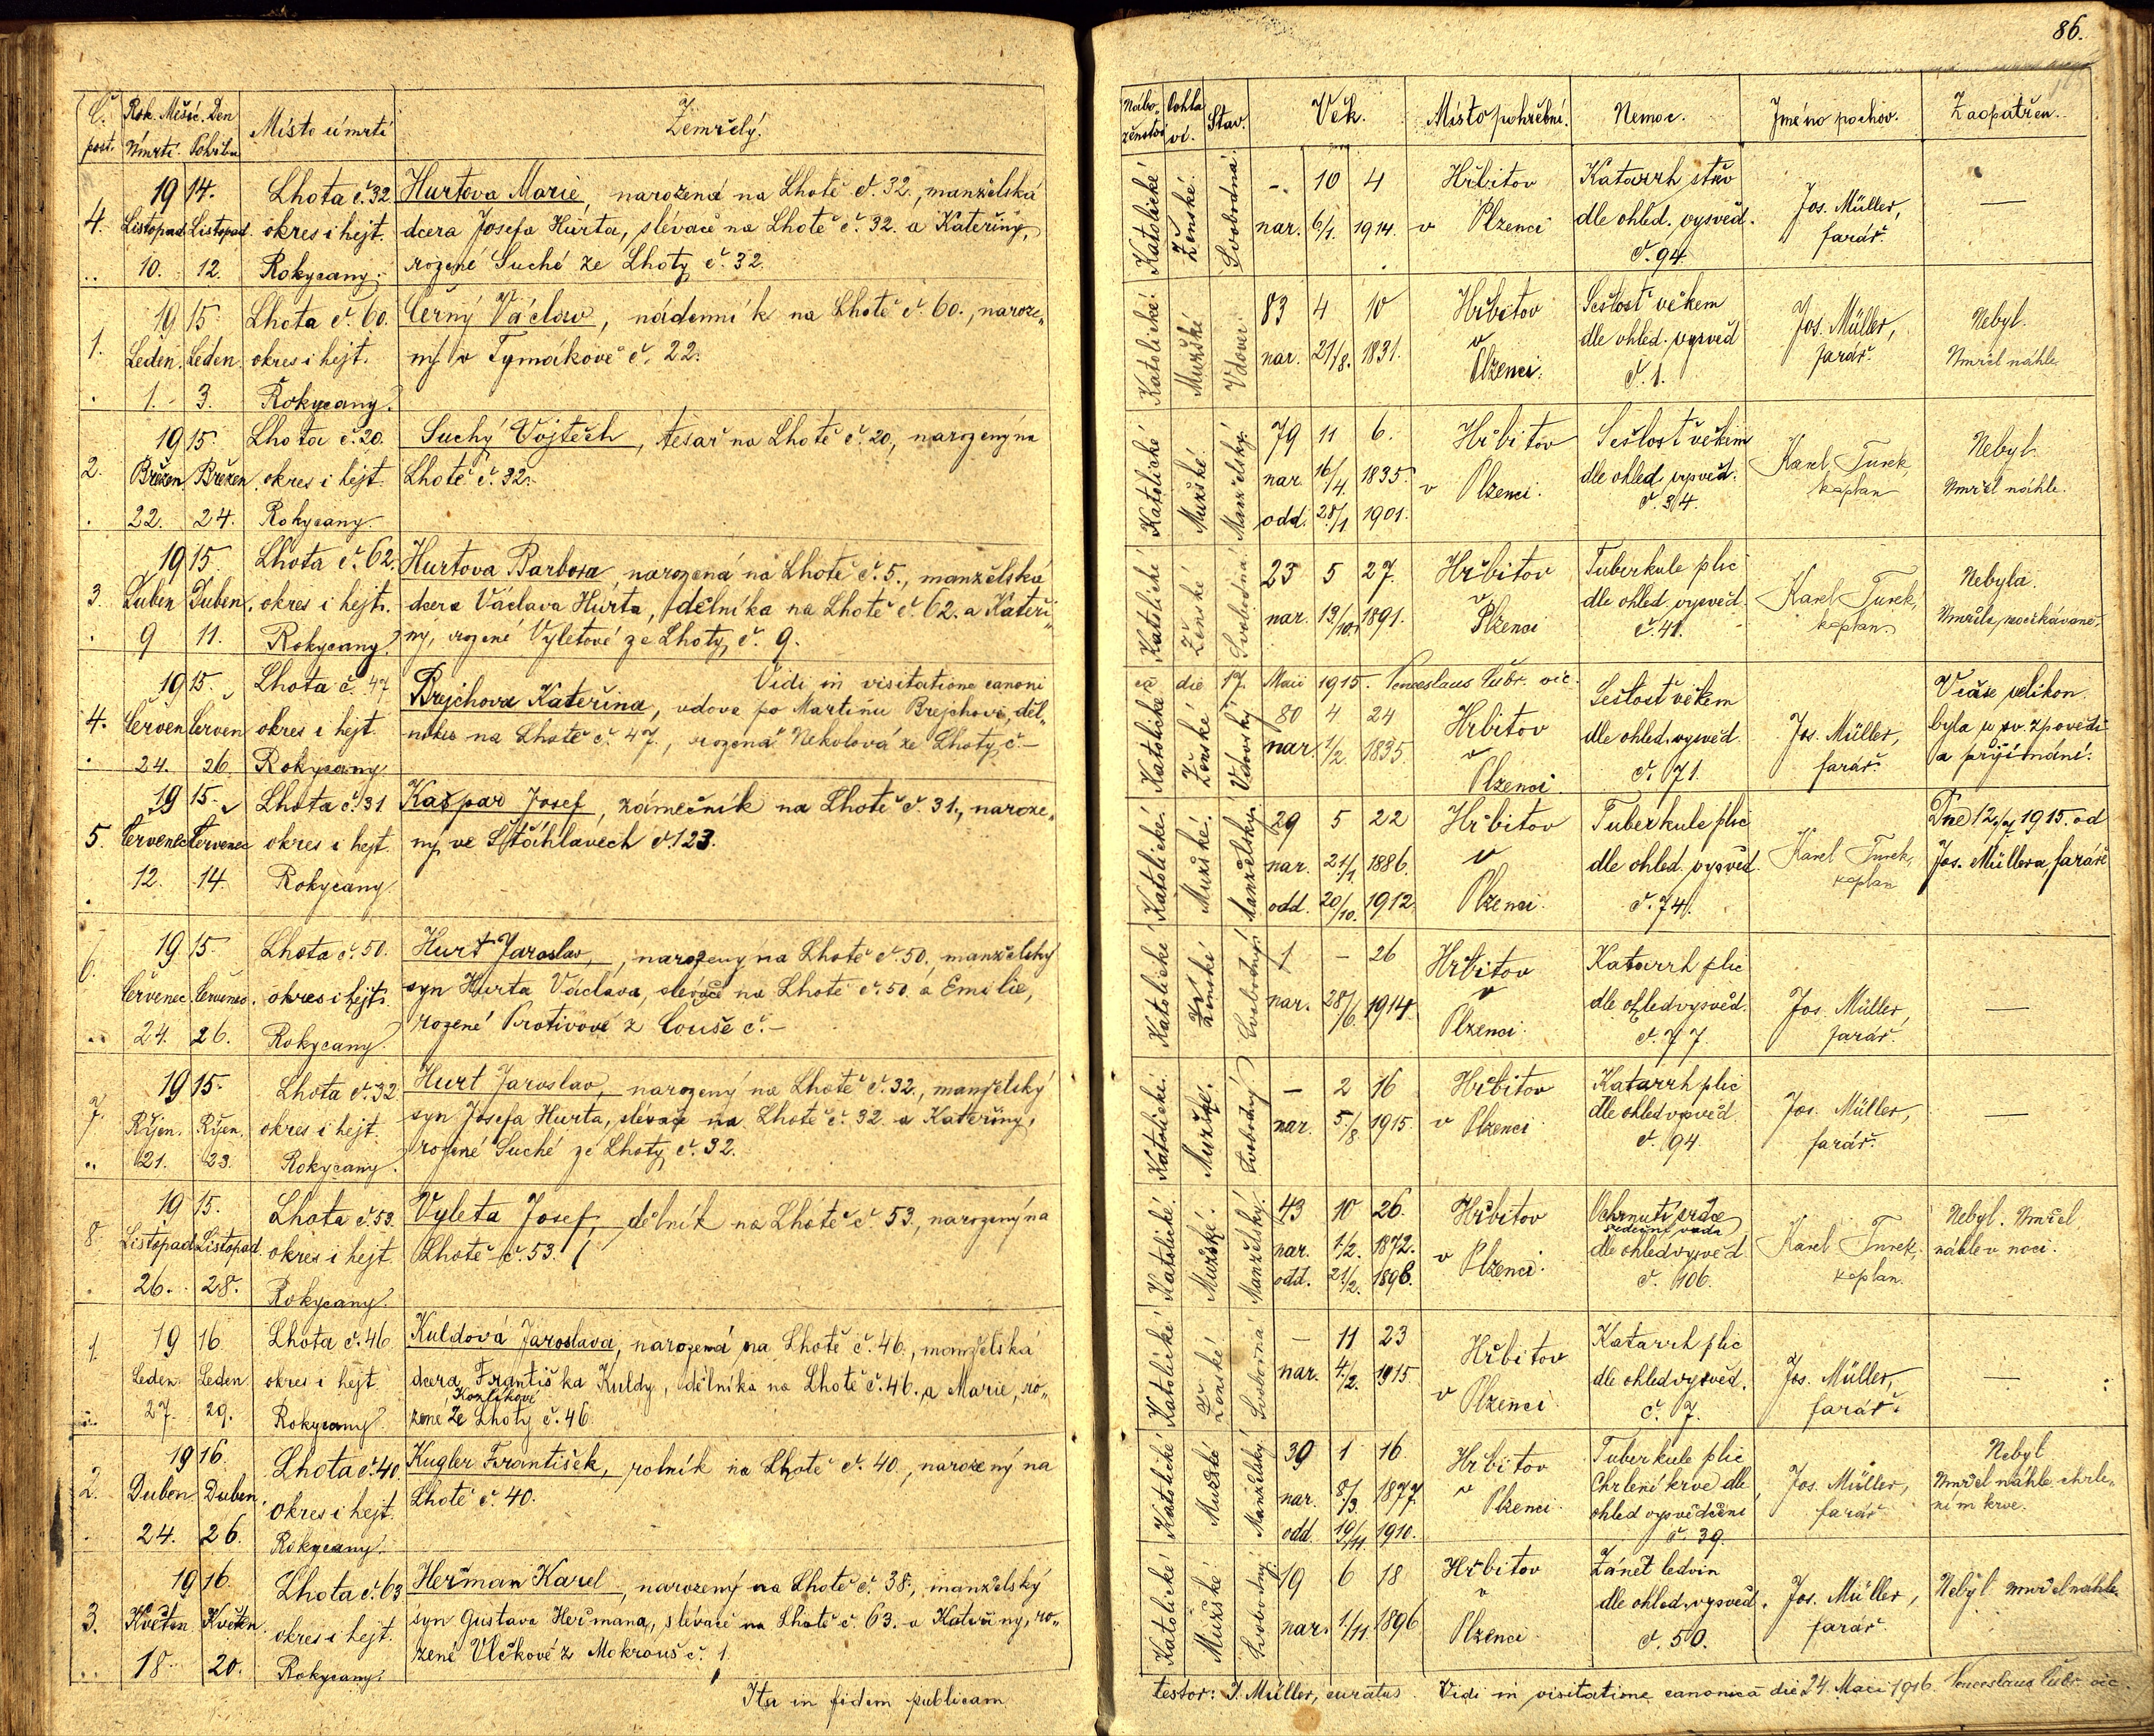 86.
Č. post.
Rok. Měsíc. Den
Úmrtí. Pohřbu
Místo úmrtí
Zemřelý.
Nábo-
ženství
Pohla
ví.
Stav.
Věk.
Místo pohřební.
Nemoc.
Jméno pochov.
Zaopatřen.
4.
1914.
Listopad Listopad.
10. 12.
Lhota č. 32
okres i hejt.
Rokycany.
Hurtova Marie, narozená na Lhotě č. 32., manželská
dcera Josefa Hurta, slévače na Lhotě č. 32. a Kateřiny,
rozené Suché ze Lhoty č. 32.
Katolické
Ženské.
Svobodná.
- 10 4
nar. 6/1. 1914.
Hřbitov
v Plzenci
Katarrh střev
dle ohled. vysvěd.
č. 94.
Jos. Müller,
farář.
—
1.
1915.
Leden. Leden.
1. 3.
Lhota č. 60.
okres i hejt.
Rokycany.
Černý Václav, nádenník na Lhotě č. 60., naroze„
ný v Tymákově č. 22.
Katolické.
Mužské
Vdovec.
83 4 10
nar. 21/8. 1831.
Hřbitov
v
Plzenci.
Sešlost věkem
dle ohled. vysvěd
č. 1.
Jos. Müller,
farář.
Nebyl.
Umřel náhle.
2.
1915.
Březen Březen
22. 24.
Lhota č. 20.
okres i hejt.
Rokycany.
Suchý Vojtěch, tesař na Lhotě č. 20, narozený na
Lhotě č. 32.
Katolické
Mužské
Manželský.
79 11 6.
nar. 16/4. 1835.
odd. 28/1 1901.
Hřbitov
v Plzenci.
Sešlost věkem
dle ohled. vysvěd.
č. 34.
Karel Turek
kaplan
Nebyl.
Umřel náhle.
3.
1915.
Duben Duben.
9 11.
Lhota č. 62.
okres i hejt.
Rokycany.
Hurtova Barbora, narozená na Lhotě č. 5., manželská
dcera Václava Hurta, dělníka na Lhotě č. 62. a Kateři„
ny, rozené Vyletové ze Lhoty č. 9.
Katolické
Ženské
Svobodná
23 5 27.
nar. 13/10. 1891.
Hřbitov
v
Plzenci
Tuberkule plic
dle ohled. vysvěd.
č. 41.
Karel Turek,
kaplan.
Nebyla.
Umřela neočekávaně.
Vidi in visitatione canoni
ca die 17 Maii 1915. Venceslaus Čubr. vic.
4.
1915.
Červen Červen
24. 26.
Lhota č. 47
okres i hejt.
Rokycany
Brejchova Kateřina, vdova po Martinu Brejchovi, děl„
níku na Lhotě č. 47., rozená Nekolová ze Lhoty č. –
Katolické
Ženské
Vdovský
80 4 24
nar. 1/2. 1835.
Hřbitov
v
Plzenci.
Sešlost věkem
dle ohled. vysvěd.
č. 71.
Jos. Müller,
farář.
V čase velikon.
byla u sv. zpovědi
a přijímání.
5.
1915.
Červenec Červenec
12. 14.
Lhota č. 31
okres i hejt.
Rokycany
Kašpar Josef, zámečník na Lhotě č. 31., naroze„
ný ve Štáhlavech č. 123.
Katolické.
Mužské.
Manželský.
29 5 22
nar. 21/1. 1886.
odd. 20/10. 1912.
Hřbitov
v
Plzenci.
Tuberkule plic
dle ohled. vysvěd.
č. 74.
Karel Turek,
kaplan
Dne 12./7. 1915. od
Jos. Müllera, faráře
6.
1915.
Červenec Červenec.
24. 26.
Lhota č. 50.
okres i hejt.
Rokycany.
Hurt Jaroslav, narozený na Lhotě č. 50., manželský
syn Hurta Václava, slévače na Lhotě č. 50. a Emilie,
rozené Protivové z Couše č. –
Katolické
Ženské
Svobodný
1 – 26
nar. 28/6. 1914
Hřbitov
v
Plzenci.
Katarrh plic
dle ohled vysvěd.
č. 77.
Jos. Müller,
farář.
—
7.
1915.
Říjen. Říjen.
21. 23.
Lhota č. 32
okres i hejt.
Rokycany.
Hurt Jaroslav, narozený na Lhotě č. 32., manželský
syn Josefa Hurta, slévače na Lhotě č. 32 a Kateřiny,
rozené Suché ze Lhoty č. 32.
Katolické.
Mužské.
Svobodný
— 2 16
nar. 5/8 1915
Hřbitov
v Plzenci
Katarrh plic
dle ohled vysvěd
č. 94.
Jos. Müller,
farář.
—
8.
1915.
Listopad Listopad
26. 28.
Lhota č. 53.
okres i hejt
Rokycany.
Vyleta Josef, dělník na Lhotě č. 53., narozený na
Lhotě č. 53.
Katolické.
Mužské.
Manželský.
43 10 26.
nar. 1/2. 1872.
odd. 21/2. 1896.
Hřbitov
v Plzenci.
Ochrnutí srdce
srdeční vada
dle ohled vysvěd
č. 106.
Karel Turek,
kaplan.
Nebyl. Umřel
náhle v noci.
1.
1916
Leden Leden
27. 29.
Lhota č. 46
okres i hejt
Rokycany
Kuldová Jaroslava, narozená na Lhotě č. 46., manželská
dcera Františka Kuldy, dělníka na Lhotě č. 46. a Marie, ro„
Kozlíkové
zené ze Lhoty č. 46.
Katolické
Ženské
Svobodná
— 11 23
nar. 4/2. 1915
Hřbitov
v Plzenci
Katarrh plic
dle ohled vysvěd.
č. 7.
Jos. Müller,
farář.
—
2.
1916.
Duben Duben.
24. 26.
Lhota č. 40.
okres i hejt.
Rokycany.
Kugler František, rolník na Lhotě č. 40., narozený na
Lhotě č. 40.
Katolické
Mužské
Manželský
39 1 16
nar. 8/3. 1877.
odd. 19/11. 1910.
Hřbitov
v
Plzenci
Tuberkule plic
Chrlení krve dle
ohled vysvědčení
č. 39.
Jos. Müller,
farář
Nebyl
Umřel náhle chrle„
ním krve.
3.
1916.
Květen Květen
18. 20.
Lhota č. 63
okres i hejt.
Rokycany.
Heřman Karel, narozený na Lhotě č. 38., manželský
syn Gustava Heřmana, slévače na Lhotě č. 63. a Kateřiny, ro„
zené Vlčkové z Mokrouš č. 1.
Katolické
Mužské
Svobodný
19 6 18
nar. 1/11. 1896
Hřbitov
v
Plzenci
Zánět ledvin
dle ohled. vysvěd.
č. 50.
Jos. Müller,
farář.
Nebyl. Umřel náhle.
Ita in fidem publicam
testor: J. Müller, curatus. Vidi in visitatione canonica die 24. Maii 1916. Venceslaus Čubr. vic.